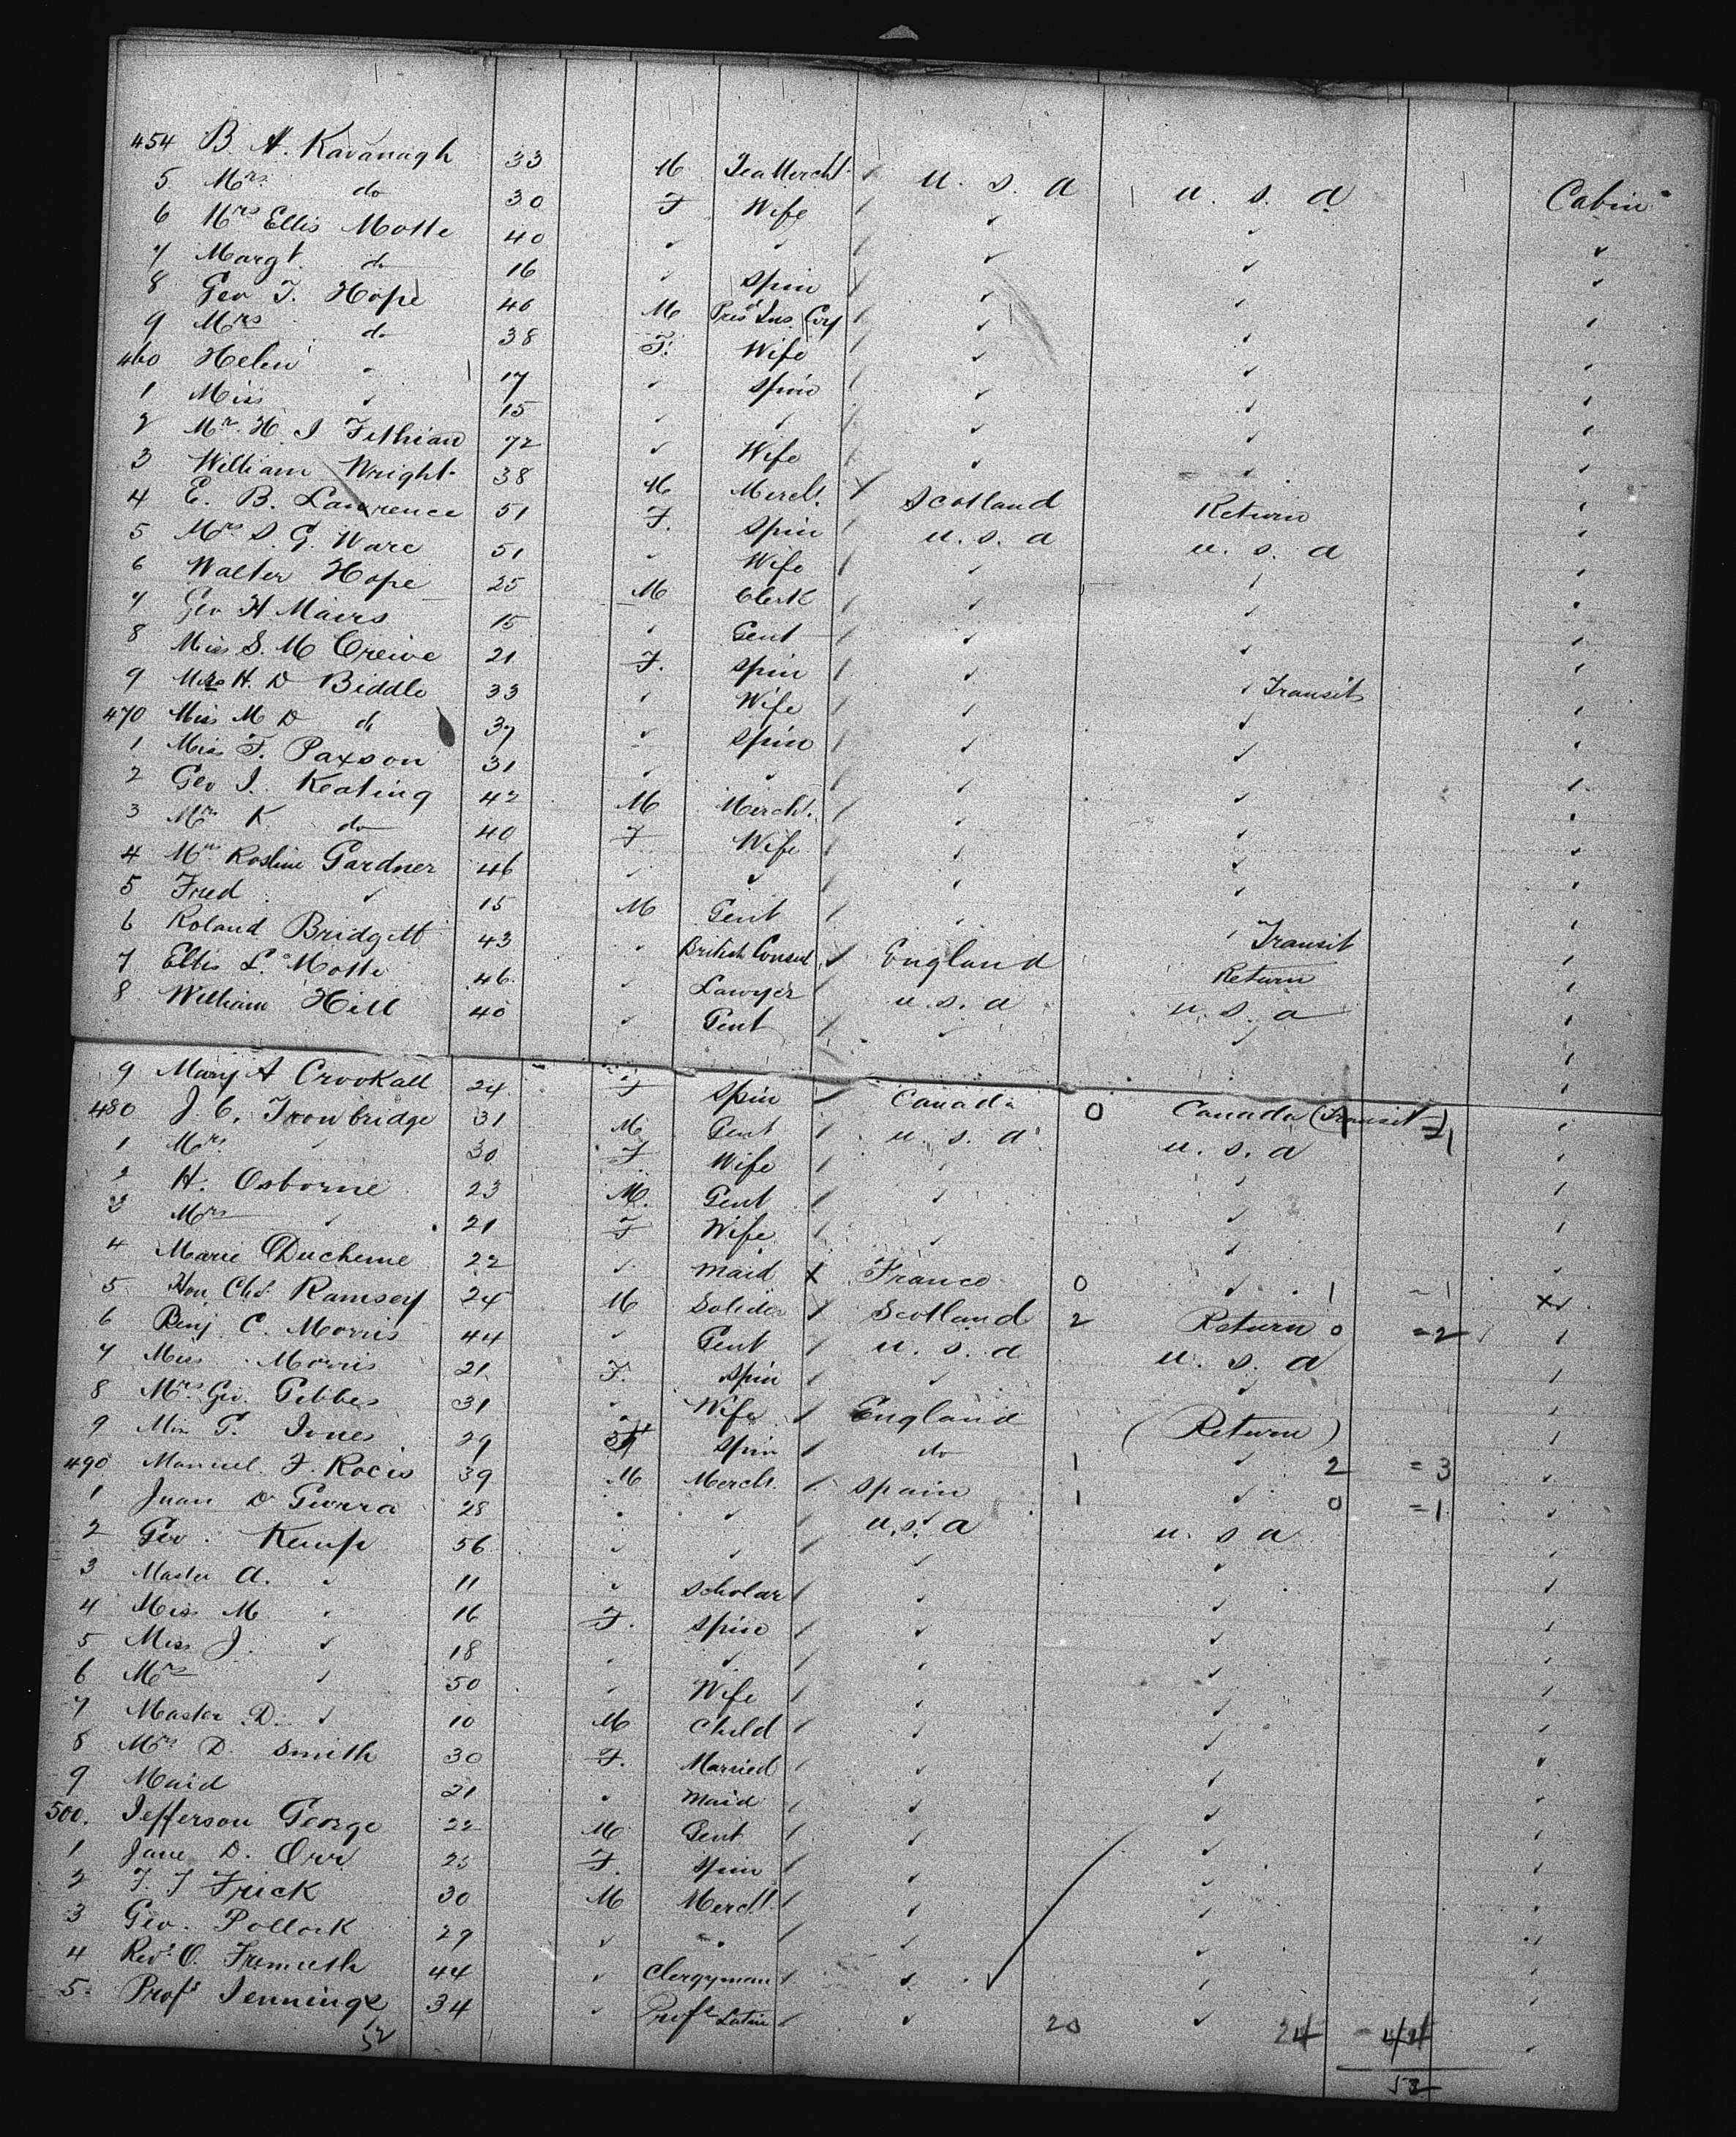 454 B. A. Kavanagh 33 M Tea Mercht. u. s. a u. s. a Cabin
5 Mrs. do 30 F Wife ✓ ✓ ✓
6 Mrs Ellis Motte 40 ✓ ✓ ✓ ✓ ✓
7 Margt. do 16 ✓ Spin ✓ ✓ ✓
8 Geo T. Hope 46 M Pres Ins. Coy ✓ ✓ ✓
9 Mrs do 38 F. Wife ✓ ✓ ✓
460 Helen ✓ 17 ✓ Spin ✓ ✓ ✓
1 Miss ✓ 15 ✓ ✓ ✓ ✓ ✓
2 Mrs. H. J Fithian 72 ✓ Wife ✓ ✓ ✓
3 William Wright 38 M Mercht. Scotland Return
4 E. B. Lawrence 51 F. Spin u. s. a u. s. a
5 Mrs S. G. Ware 51 ✓ Wife ✓ ✓
6 Walter Hope 25 M Clerk ✓ ✓
7 Geo H Mairs 15 ✓ Gent ✓ ✓
8 Miss S. M 21 F. Spin ✓ ✓ Transit
9 Mrs H. D Biddle 33 ✓ Wife ✓ ✓
470 Miss M D do 37 ✓ Spin ✓ ✓
1 Miss F. Paxson 31 ✓ ✓ ✓ ✓
2 Geo J. Keating 42 M Mercht. ✓ ✓
3 Mrs K do 40 F Wife ✓ ✓
4 Mrs Rosline Gardner 46 ✓ ✓ ✓ ✓
5 Fred ✓ 15 M Gent ✓ Transit
6 Roland Bridgett 43 ✓ British Consul England Return
7 Ellis L. Motte 46 ✓ Lawyer u. s. a u. s. a
8 William Hill 40 ✓ Gent ✓ ✓
9 Mary A Crookall 24 F Spin Canada 0 Canada (Transit) =1
480 J. C. Trowbridge 31 M Gent u. s. a u. s. a
1 Mrs. ✓ 30 F Wife ✓ ✓
2 H. Osborne 23 M. Gent ✓ ✓
3 Mrs ✓ 21 F Wife ✓ ✓
4 Marie Ducheme 22 ✓ Maid X France 0 ✓ 1 =1
5 Hon Chs. Ramsey 24 M Solider Scotland 2 Return 0 =2
6 Benj C. Morris 44 ✓ Gent u. s. a u. s. a
7 Miss Morris 21 F. Spin ✓ ✓
8 Mrs. Geo. Gibbes 31 ✓ Wife England (Return)
9 Miss G. Jones 29 F Spin do 1 ✓ 2 =3
490 Manuel F. Rocis 39 M Mercht. Spain 1 ✓ 0 =1
1 Juan D Guerra 28 ✓ ✓ u. s. a u. s a
2 Geo. Kemp 56 ✓ ✓ ✓ ✓
3 Master A. ✓ 11 ✓ Scholar ✓ ✓
4 Miss M. ✓ 16 F. Spin ✓ ✓
5 Miss J. ✓ 18 ✓ ✓ ✓ ✓
6 Mrs ✓ 50 ✓ Wife ✓ ✓
7 Master D. ✓ 10 M Child ✓ ✓
8 Mrs D. Smith 30 F. Married ✓ ✓
9 Maid 21 ✓ Maid ✓ ✓
500. Jefferson George 22 M Gent ✓ ✓
1 Jane D. Orr 25 F. Spin ✓ ✓
2 T. J Frick 30 M Mercht. ✓ ✓
3 Geo. Pollock 29 ✓ ✓ ✓ ✓
4 Revd. O. 44 ✓ Clergyman ✓ ✓
5. Profr Jennings 34 ✓ Profr Latin ✓ ✓
52 20 24 = 44
52